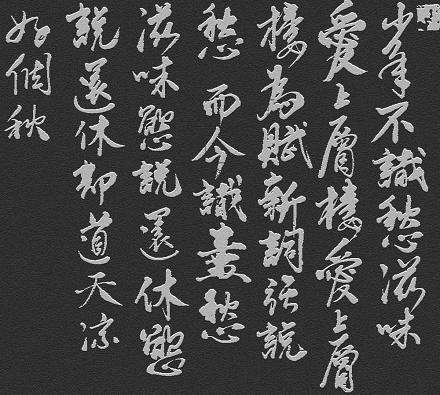 少年不識愁滋味
愛上層樓愛上層
樓為賦新詞強說
愁而今識盡愁
滋味慾說還休慾
說還休却道天涼
好個秋